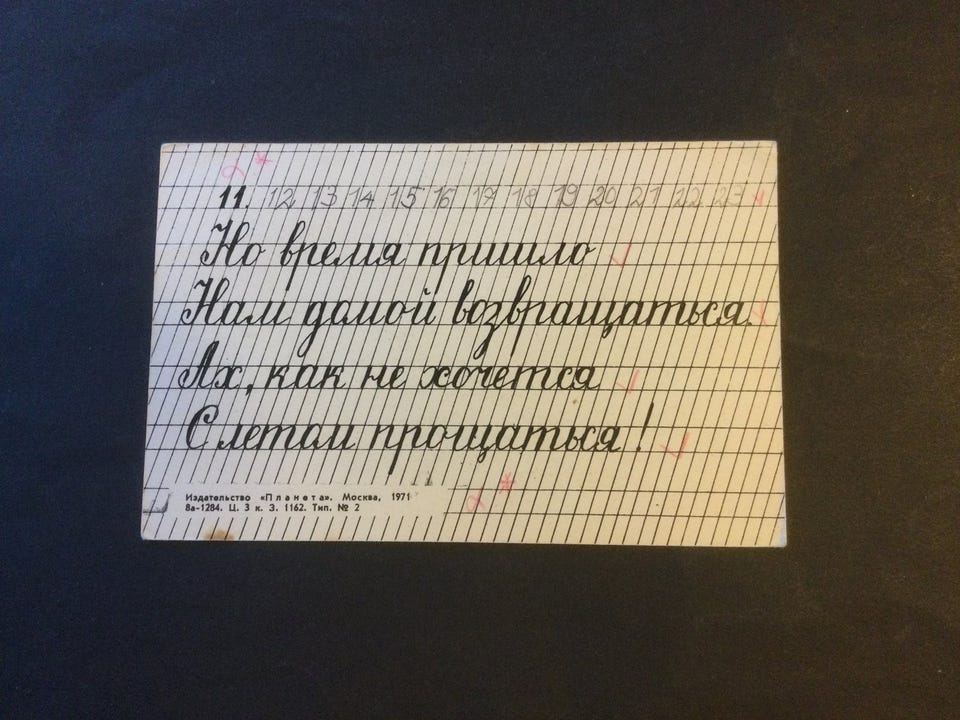 11. 12 13 14 15 16 17 18 19 20 21 22 23
Но время пришло
Нам домой возвращаться.
Ах, как не хочется
С летом прощаться!
Издательство «Планета». Москва, 1971
8а-1284. Ц. 3 к. З. 1162. Тип. № 2